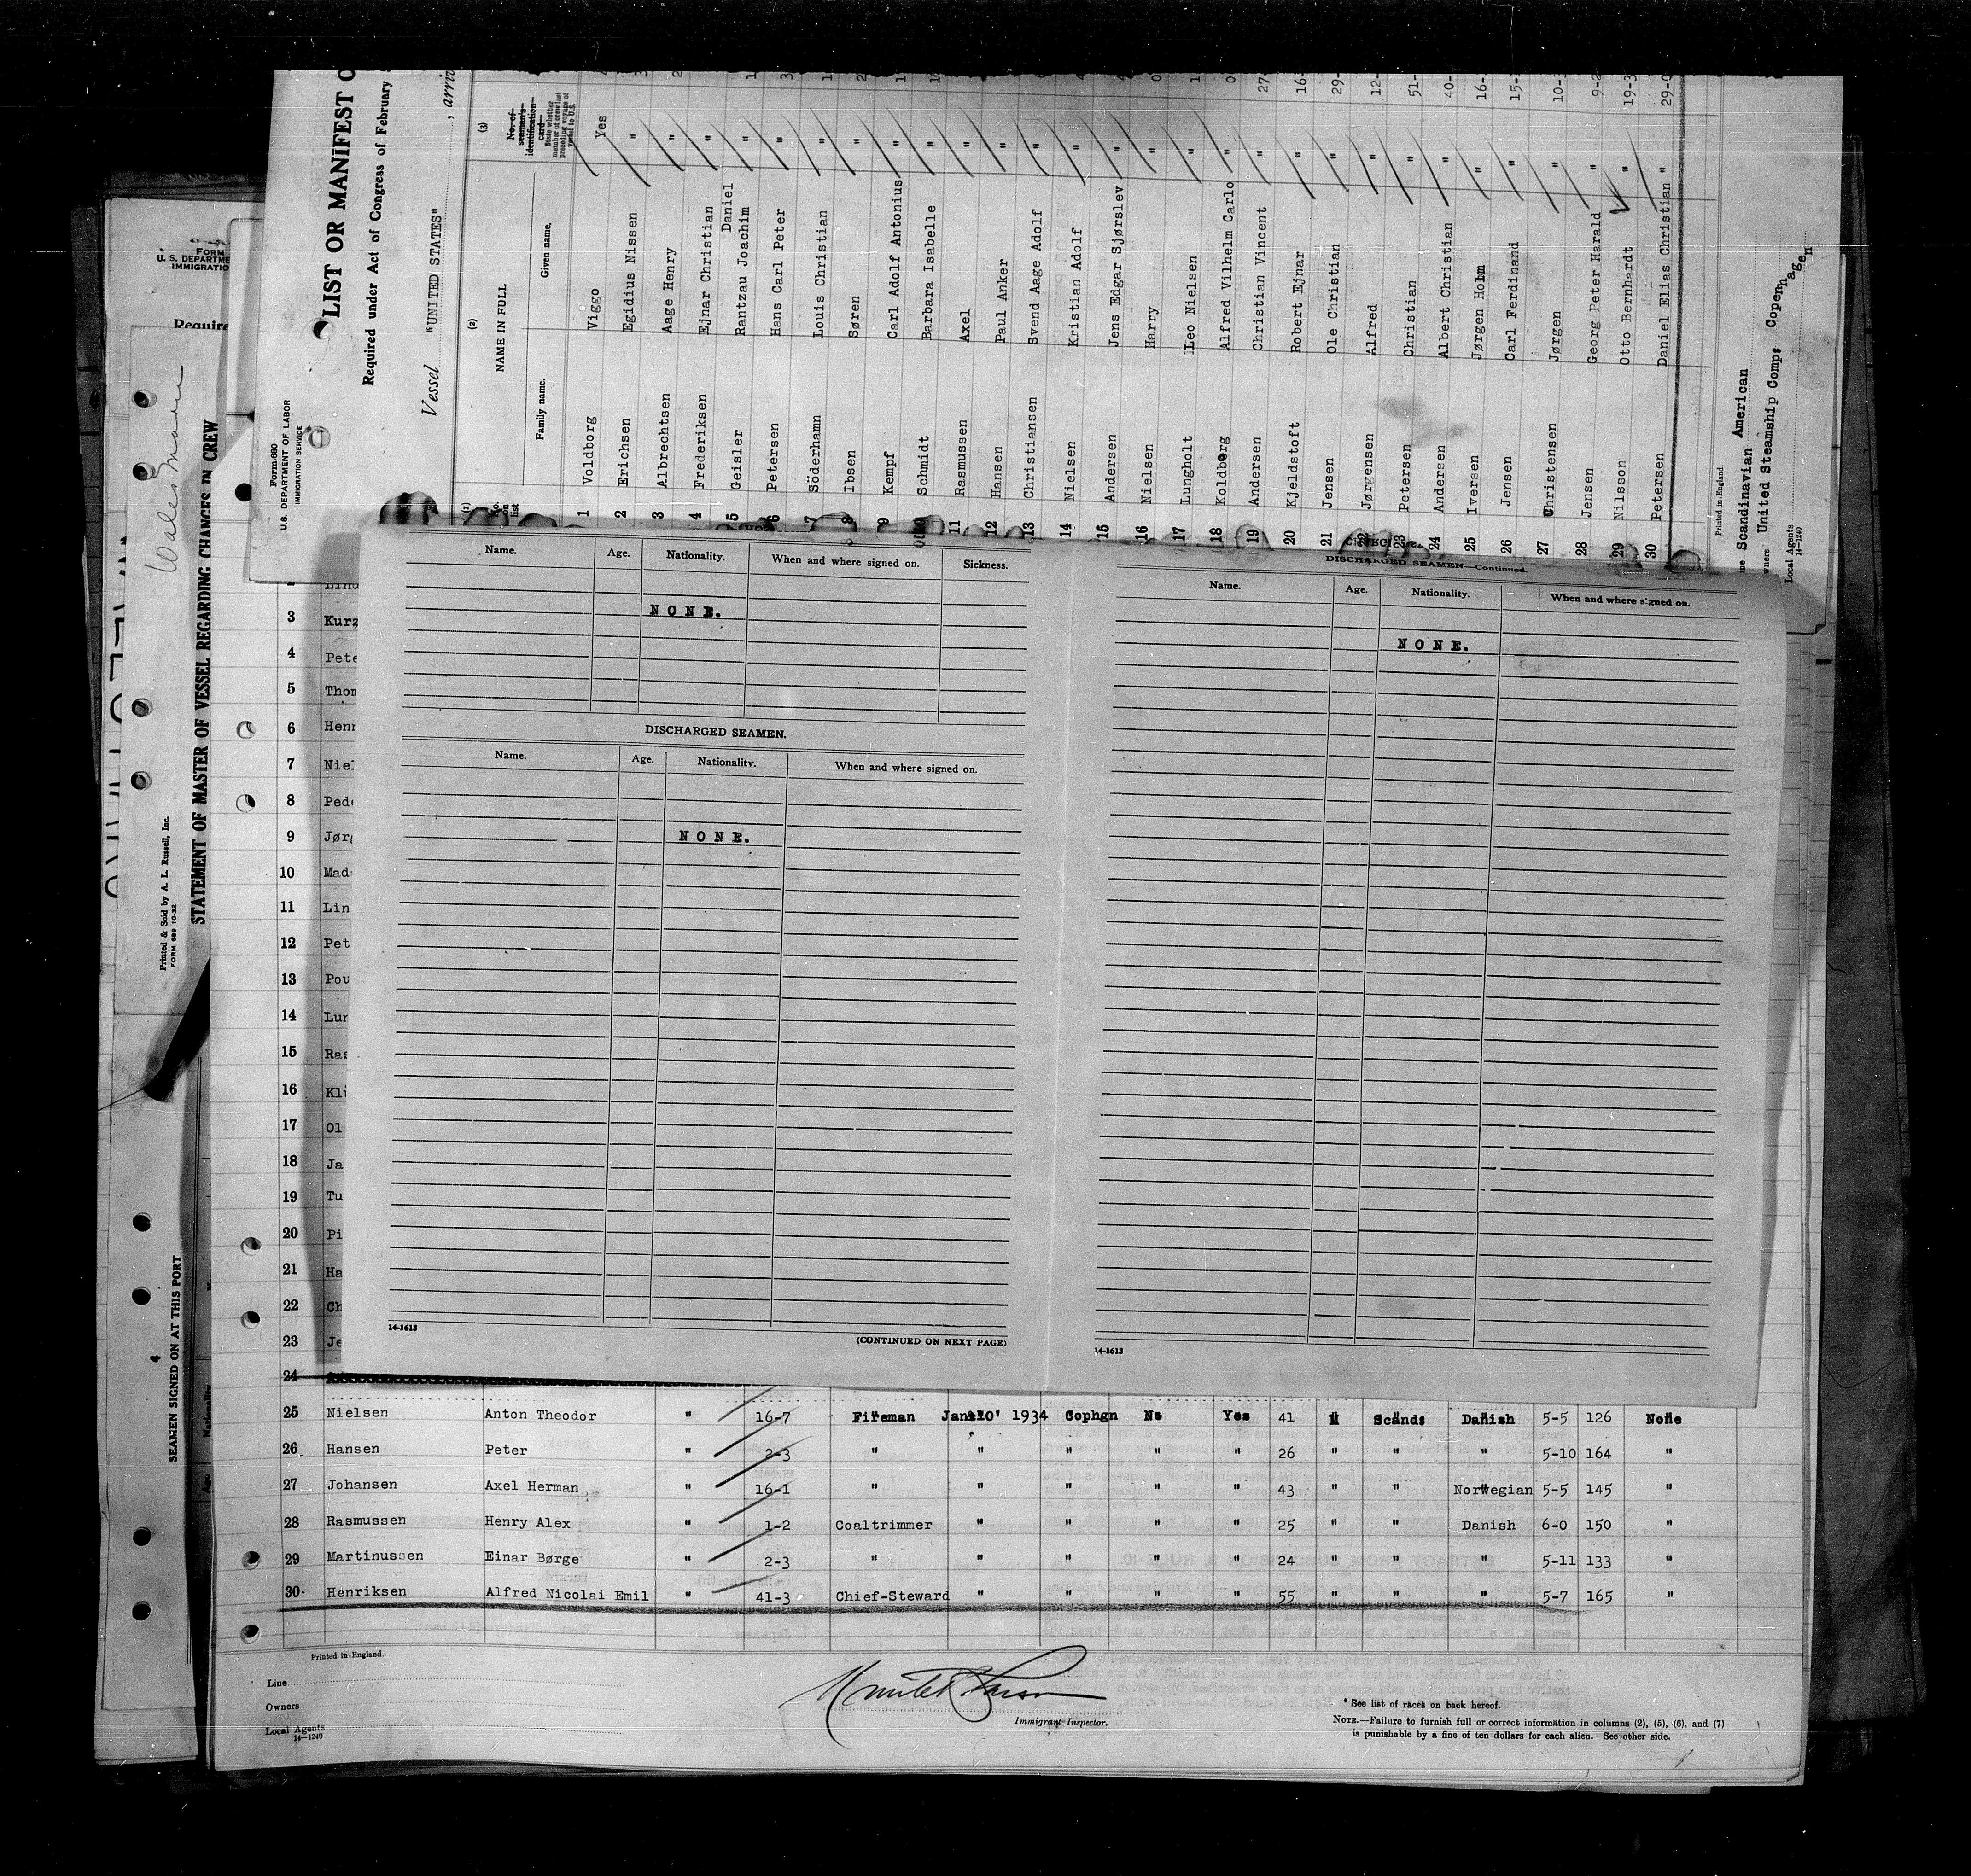 FORM
U. S. DEPARTME
IMMIGRATIO
Require
Wales Maru
Printed & Sold by A. L. Russell, Inc.
FORM 689 10-32
STATEMENT OF MASTER OF VESSEL REGARDING CHANGES IN CREW
SEAMEN SIGNED ON AT THIS PORT
4
Nationality
Age
Form 680
U.S. DEPARTMENT OF LABOR
IMMIGRATION SERVICE
LIST OR MANIFEST O
Required under Act of Congress of February
Vessel "UNITED STATES" , arri
(1) (2) (3)
No. on list NAME IN FULL No. of seaman's identification card—
State whether member of crew last preceding voyage of vessel to U.S.
Family name. Given name.
1 Voldborg Viggo Yes
2 Erichsen Egidius Nissen "
3 Albrechtsen Aage Henry "
4 Frederiksen Ejnar Christian "
5 Geisler Rantzau Joachim Daniel "
6 Petersen Hans Carl Peter "
7 Söderhamn Louis Christian "
8 Ibsen Søren "
9 Kempf Carl Adolf Antonius "
10 Schmidt Barbara Isabelle "
11 Rasmussen Axel "
12 Hansen Paul Anker "
13 Christiansen Svend Aage Adolf "
14 Nielsen Kristian Adolf "
15 Andersen Jens Edgar Sjørslev "
16 Nielsen Harry "
17 Lungholt Leo Nielsen "
18 Koldborg Alfred Vilhelm Carlo "
19 Andersen Christian Vincent " 27-
20 Kjeldstoft Robert Ejnar " 16-
21 Jensen Ole Christian " 29-
22 Jørgensen Alfred " 12-
23 Petersen Christian " 51-
24 Andersen Albert Christian " 40-
25 Iversen Jørgen Holm " 16-
26 Jensen Carl Ferdinand " 15-
27 Christensen Jørgen " 10-
28 Jensen Georg Peter Harald " 9-2
29 Nilsson Otto Bernhardt " 19-3
30 Petersen Daniel Elias Christian " 29-0
Printed in England.
ine Scandinavian American
wners United Steamship Comp: Copenhagen
Local Agents
14-1240
Name. Age. Nationality. When and where signed on. Sickness.
NONE.
DISCHARGED SEAMEN.
Name. Age. Nationality. When and where signed on.
NONE.
14-1613
(CONTINUED ON NEXT PAGE)
DISCHARGED SEAMEN—Continued.
Name. Age. Nationality. When and where signed on.
NONE.
14-1613
Lind
3 Kurz
4 Pete
5 Thom
6 Henr
7 Niel
8 Pede
9 Jørg
10 Mads
11 Lin
12 Pet
13 Pou
14 Lun
15 Ras
16 Kli
17 Ol
18 Ja
19 Tu
20 Pi
21 Ha
22 Ch
23 Je
24
25 Nielsen Anton Theodor " 16-7 Fireman Jan:10' 1934 Cophgn No Yes 41 M Scand: Danish 5-5 126 None
26 Hansen Peter " 2-3 " " " " " 26 " " " 5-10 164 "
27 Johansen Axel Herman " 16-1 " " " " " 43 " " Norwegian 5-5 145 "
28 Rasmussen Henry Alex " 1-2 Coaltrimmer " " " " 25 " " Danish 6-0 150 "
29 Martinussen Einar Børge " 2-3 " " " " " 24 " " " 5-11 133 "
30 Henriksen Alfred Nicolai Emil " 41-3 Chief-Steward " " " " 55 " " " 5-7 165 "
Printed in England.
Line
Owners
Local Agents
14-1240
Immigrant Inspector.
* See list of races on back hereof.
NOTE.—Failure to furnish full or correct information in columns (2), (5), (6), and (7)
is punishable by a fine of ten dollars for each alien. See other side.